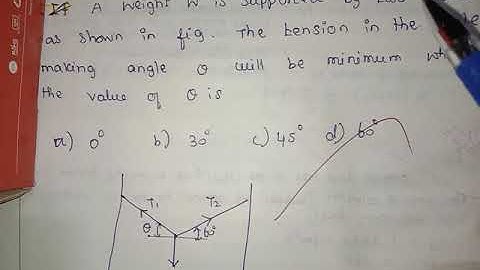 A weight W is supported by
as shown in fig. The tension in the
making angle θ will be minimum
the value of θ is
a) 0° b) 30° c) 45° d) 60°
T1 T2
θ 60°